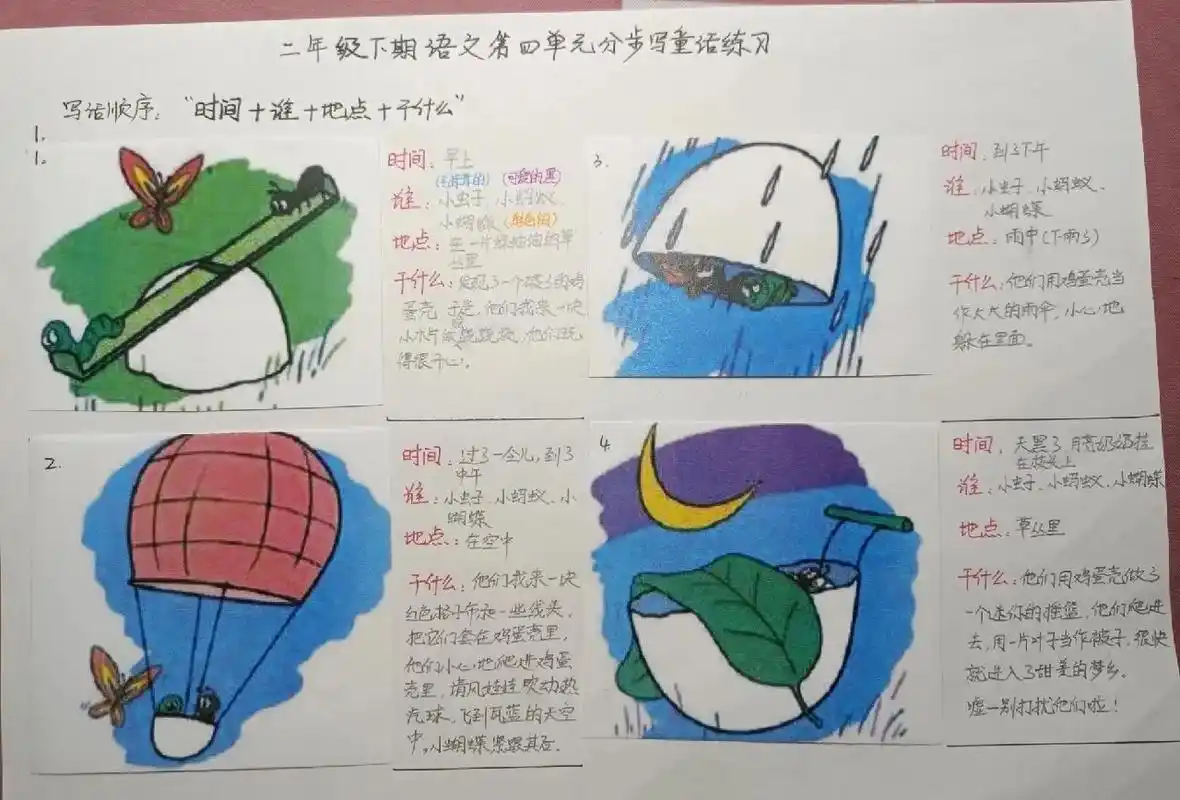 二年级下期语文第四单元分步写童话练习
写话顺序："时间+谁+地点+干什么"
1.
1.
时间：早上
(毛茸茸的) (可爱的黑)
谁：小虫子、小蚂蚁、
小蝴蝶(橙色的)
地点：在一片绿油油的草
丛里
干什么：发现了一个破了的鸡
蛋壳 于是，他们找来一块
小木片做跷跷板，他们玩
得很开心。
2.
时间：过了一会儿，到了
中午
谁：小虫子、小蚂蚁、小
蝴蝶
地点：在空中
干什么：他们找来一块
红色格子布和一些线头，
把它们套在鸡蛋壳里，
他们小心地爬进鸡蛋
壳里，清风娃娃吹动热
气球，飞到瓦蓝的天空
中，小蝴蝶紧跟其后.
3.
时间：到了下午
谁：小虫子、小蚂蚁、
小蝴蝶
地点：雨中(下雨了)
干什么：他们用鸡蛋壳当
作大大的雨伞，小心地
躲在里面。
4.
时间：天黑了 月亮奶奶挂
在枝头上
谁：小虫子、小蚂蚁、小蝴蝶
地点：草丛里
干什么：他们用鸡蛋壳做了
一个迷你的摇篮，他们爬进
去，用一片叶子当作被子，很快
就进入了甜美的梦乡。
嘘—别打扰他们啦！